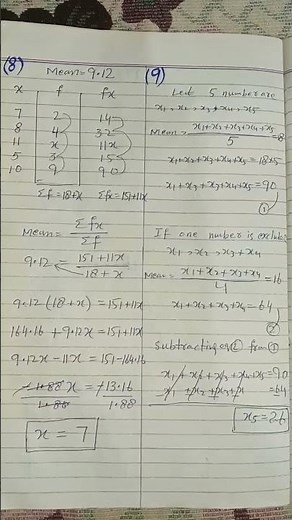 (8)
Mean = 9.12
x f fx
7 2 14
8 4 32
11 x 11x
5 3 15
10 9 90
Σf = 18+x Σfx = 151+11x
Mean = Σfx / Σf
9.12 = 151+11x / 18+x
9.12(18+x) = 151+11x
164.16 + 9.12x = 151+11x
9.12x - 11x = 151-164.16
-1.88x / 1.88 = -13.16 / 1.88
x = 7
(9)
Let 5 number are
x1, x2, x3, x4, x5
Mean = x1+x2+x3+x4+x5 / 5 = 18
x1+x2+x3+x4+x5 = 18×5
x1+x2+x3+x4+x5 = 90
①
If one number is exclude
x1, x2, x3, x4
Mean = x1+x2+x3+x4 / 4 = 16
x1+x2+x3+x4 = 64
②
Subtracting eq ② from ①
x1+x2+x3+x4+x5 = 90
x1+x2+x3+x4 = 64
x5 = 26